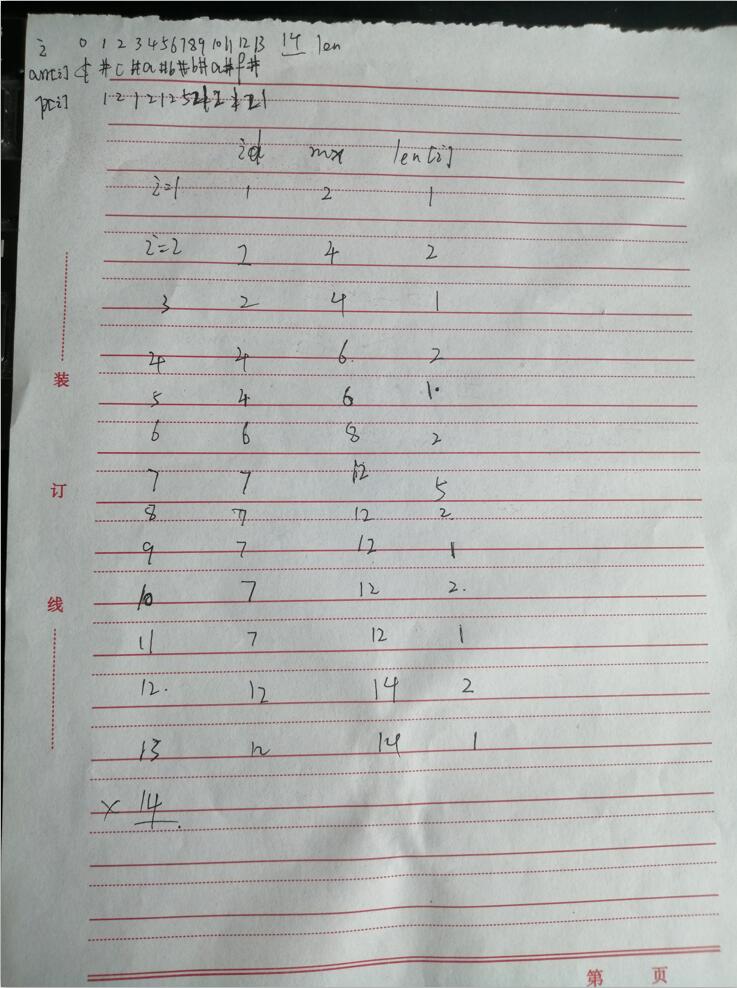 i 0 1 2 3 4 5 6 7 8 9 10 11 12 13 14 len
arr[i] ¢ # c # a # b # b # a # f #
p[i] 1 2 1 2 1 2 5 2 1 2 1 2 1
id mx len[i]
i=1 1 2 1
i=2 2 4 2
3 2 4 1
4 4 6. 2
5 4 6 1.
6 6 8 2
7 7 12 5
8 7 12 2.
9 7 12 1
10 7 12 2.
11 7 12 1
12. 12 14 2
13 12 14 1
× 14.
装
订
线
第 页